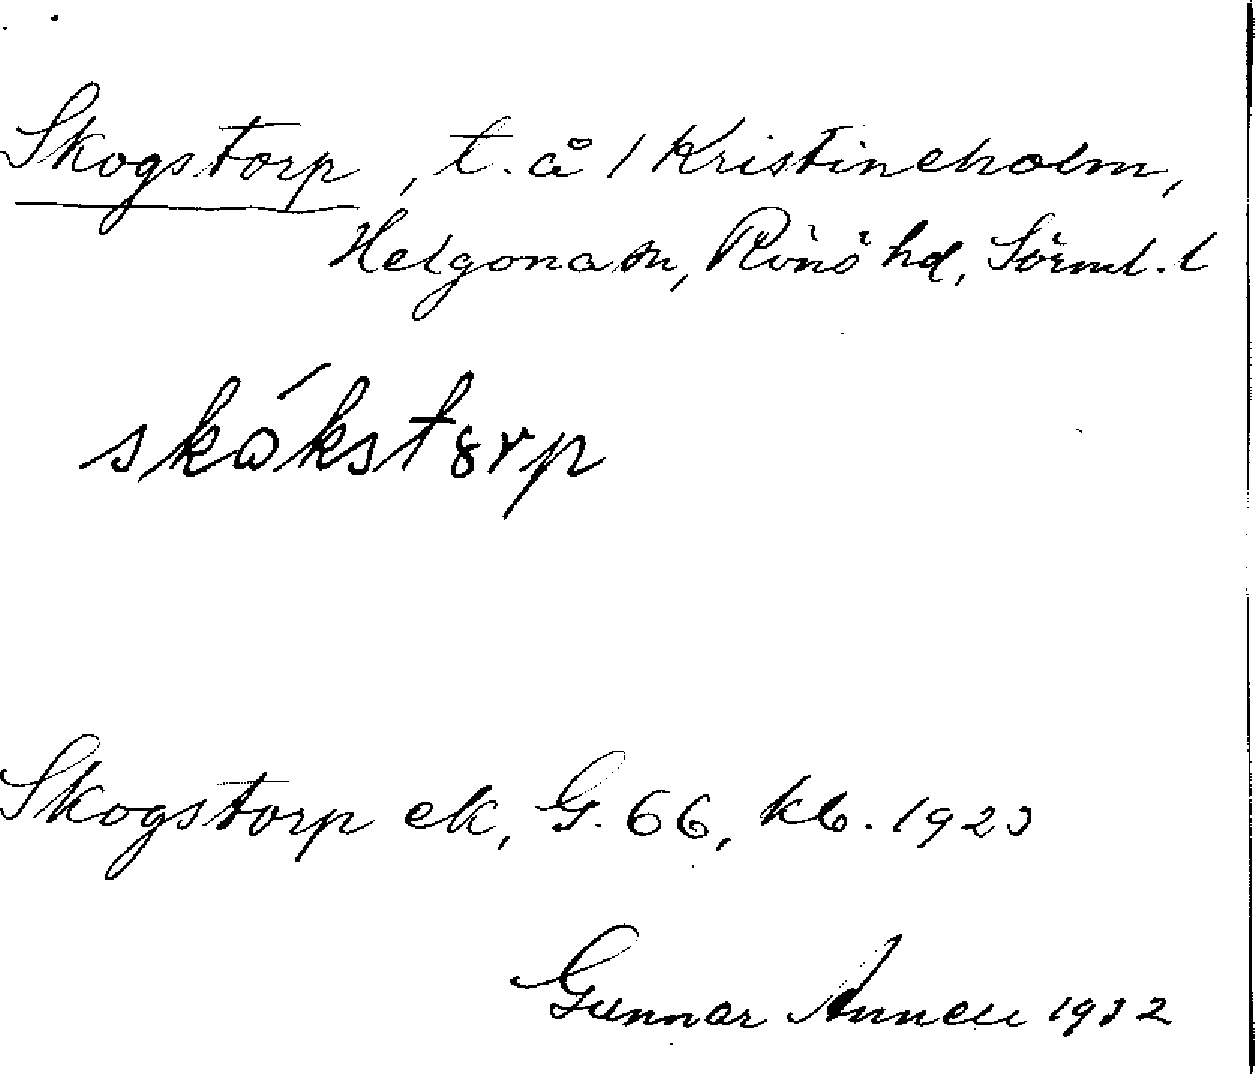 Skogstorp, t. å / Kristineholm,
Helgona sn, Rönö hd, Sörml. l
skókstorp
Skogstorp ek, G. 66, kb. 1923
Gunnar Annell 1932